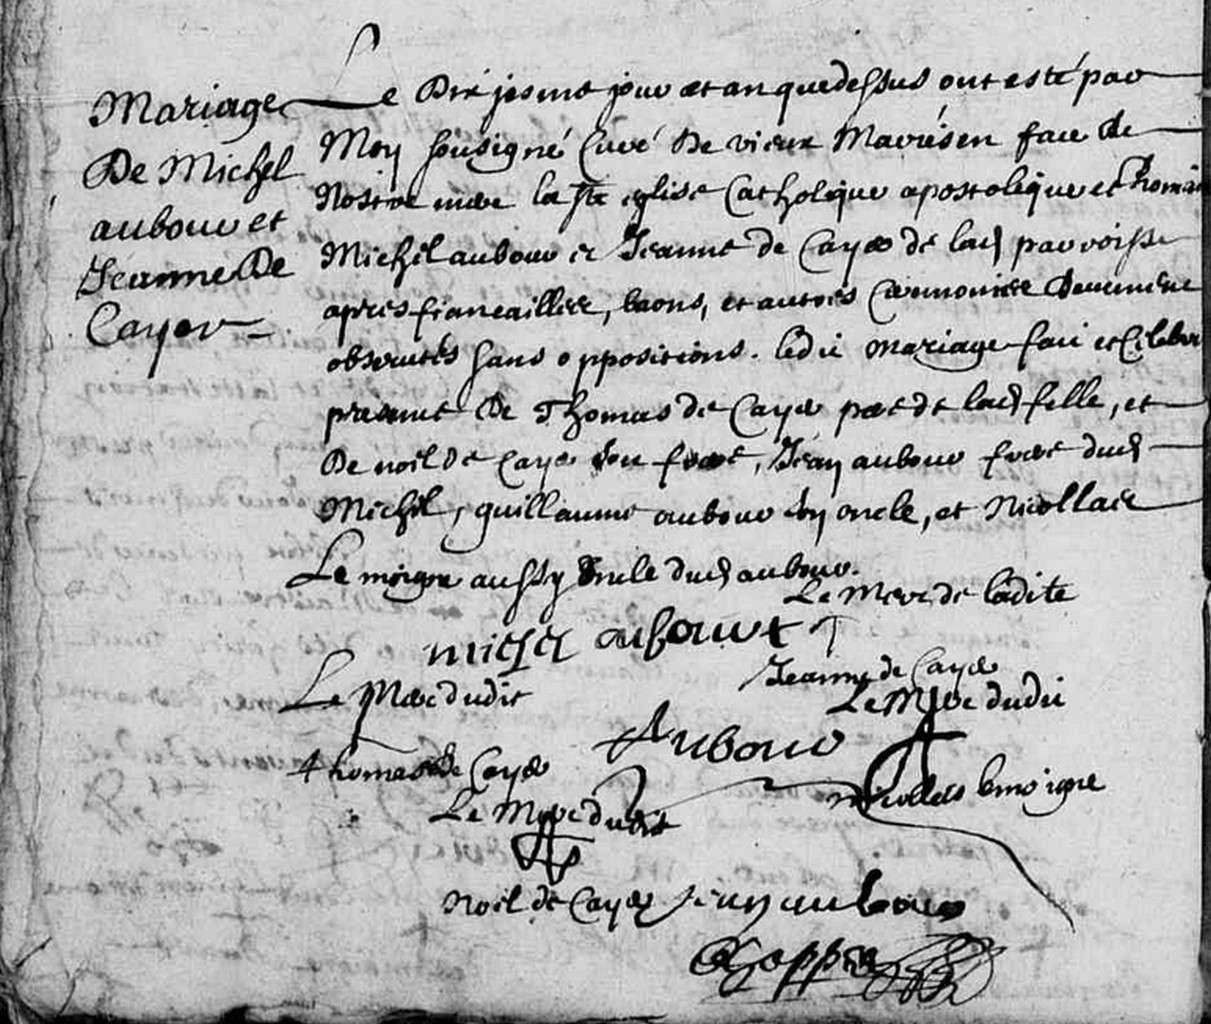 Mariage
De Michel
aubouret
Jeanne De
Cayer
Le Dixiesme jour et an que dessus ont esté par
Moy sousigné Curé De vieux Manoir en face de
Nostre mere la ste eglise Catholique apostolique et Rhomaine
Michel aubour et Jeanne de Cayer de lad parroisse
apres fiancailles, bans, et autres ceremonies
observees sans oppositions. ledit mariage fait et Celebré
presence De Thomas de Cayer pere de lad fille, et
De noel De Cayer son frere, Jean aubour frere dud
Michel, guillaume aubour son oncle, et Nicollas
Le moigne aussy oncle dud aubour.
Le Merc de ladite
michel aubourt
Jeanne de Cayer
Le Merc dudit
Le Merc dudit
Aubour
thomas de Cayer
nicollas lemoigne
Le Merc dudit
Noel de Cayer Jean aubour